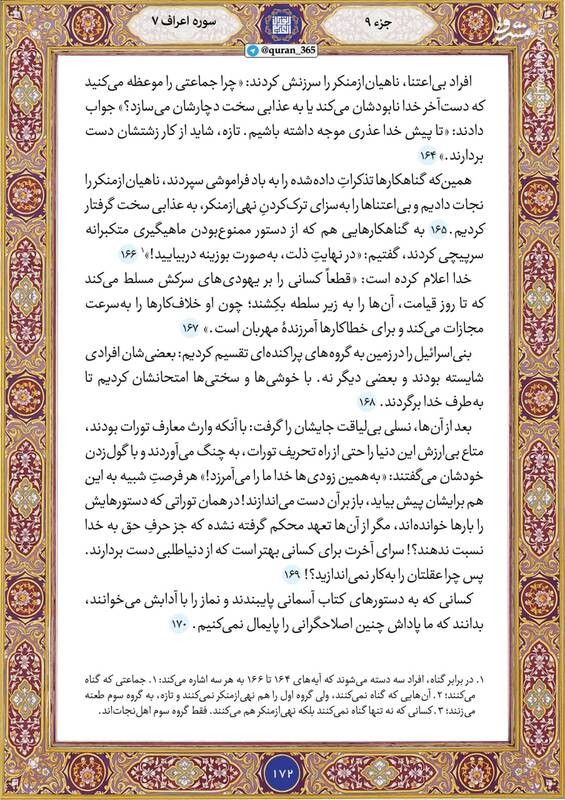 جزء ۹
سوره اعراف ۷
@quran_365
افراد بی‌اعتنا، ناهیان‌ازمنکر را سرزنش کردند: «چرا جماعتی را موعظه می‌کنید
که دست‌آخر خدا نابودشان می‌کند یا به عذابی سخت دچارشان می‌سازد؟» جواب
دادند: «تا پیش خدا عذری موجه داشته باشیم. تازه، شاید از کار زشتشان دست
بردارند.» ۱۶۴
همین‌که گناهکارها تذکراتِ داده‌شده را به باد فراموشی سپردند، ناهیان‌ازمنکر را
نجات دادیم و بی‌اعتناها را به‌سزای ترک‌کردنِ نهی‌ازمنکر، به عذابی سخت گرفتار
کردیم. ۱۶۵ به گناهکارهایی هم که از دستور ممنوع‌بودن ماهیگیری متکبرانه
سرپیچی کردند، گفتیم: «در نهایتِ ذلت، به‌صورت بوزینه دربیایید!»۱ ۱۶۶
خدا اعلام کرده است: «قطعاً کسانی را بر یهودی‌های سرکش مسلط می‌کند
که تا روز قیامت، آن‌ها را به زیر سلطه بکِشند؛ چون او خلاف‌کارها را به‌سرعت
مجازات می‌کند و برای خطاکارها آمرزندهٔ مهربان است.» ۱۶۷
بنی‌اسرائیل را در زمین به گروه‌های پراکنده‌ای تقسیم کردیم: بعضی‌شان افرادی
شایسته بودند و بعضی دیگر نه. با خوشی‌ها و سختی‌ها امتحانشان کردیم تا
به‌طرف خدا برگردند. ۱۶۸
بعد از آن‌ها، نسلی بی‌لیاقت جایشان را گرفت: با آنکه وارث معارف تورات بودند،
متاع بی‌ارزش این دنیا را حتی از راه تحریف تورات، به چنگ می‌آوردند و با گول‌زدن
خودشان می‌گفتند: «به‌همین زودی‌ها خدا ما را می‌آمرزد!» هر فرصتِ شبیه به این
هم برایشان پیش بیاید، باز بر آن دست می‌اندازند! در همان توراتی که دستورهایش
را بارها خوانده‌اند، مگر از آن‌ها تعهد محکم گرفته نشده که جز حرفِ حق به خدا
نسبت ندهند؟! سرای آخرت برای کسانی بهتر است که از دنیاطلبی دست بردارند.
پس چرا عقلتان را به‌کار نمی‌اندازید؟! ۱۶۹
کسانی که به دستورهای کتاب آسمانی پایبندند و نماز را با آدابش می‌خوانند،
بدانند که ما پاداش چنین اصلاحگرانی را پایمال نمی‌کنیم. ۱۷۰
۱. در برابر گناه، افراد سه دسته می‌شوند که آیه‌های ۱۶۴ تا ۱۶۶ به هر سه اشاره می‌کند: ۱. جماعتی که گناه
می‌کنند؛ ۲. آن‌هایی که گناه نمی‌کنند، ولی گروه اول را هم نهی‌ازمنکر نمی‌کنند و تازه، به گروه سوم طعنه
می‌زنند؛ ۳. کسانی که نه تنها گناه نمی‌کنند بلکه نهی‌ازمنکر هم می‌کنند. فقط گروه سوم اهل‌نجات‌اند.
۱۷۲